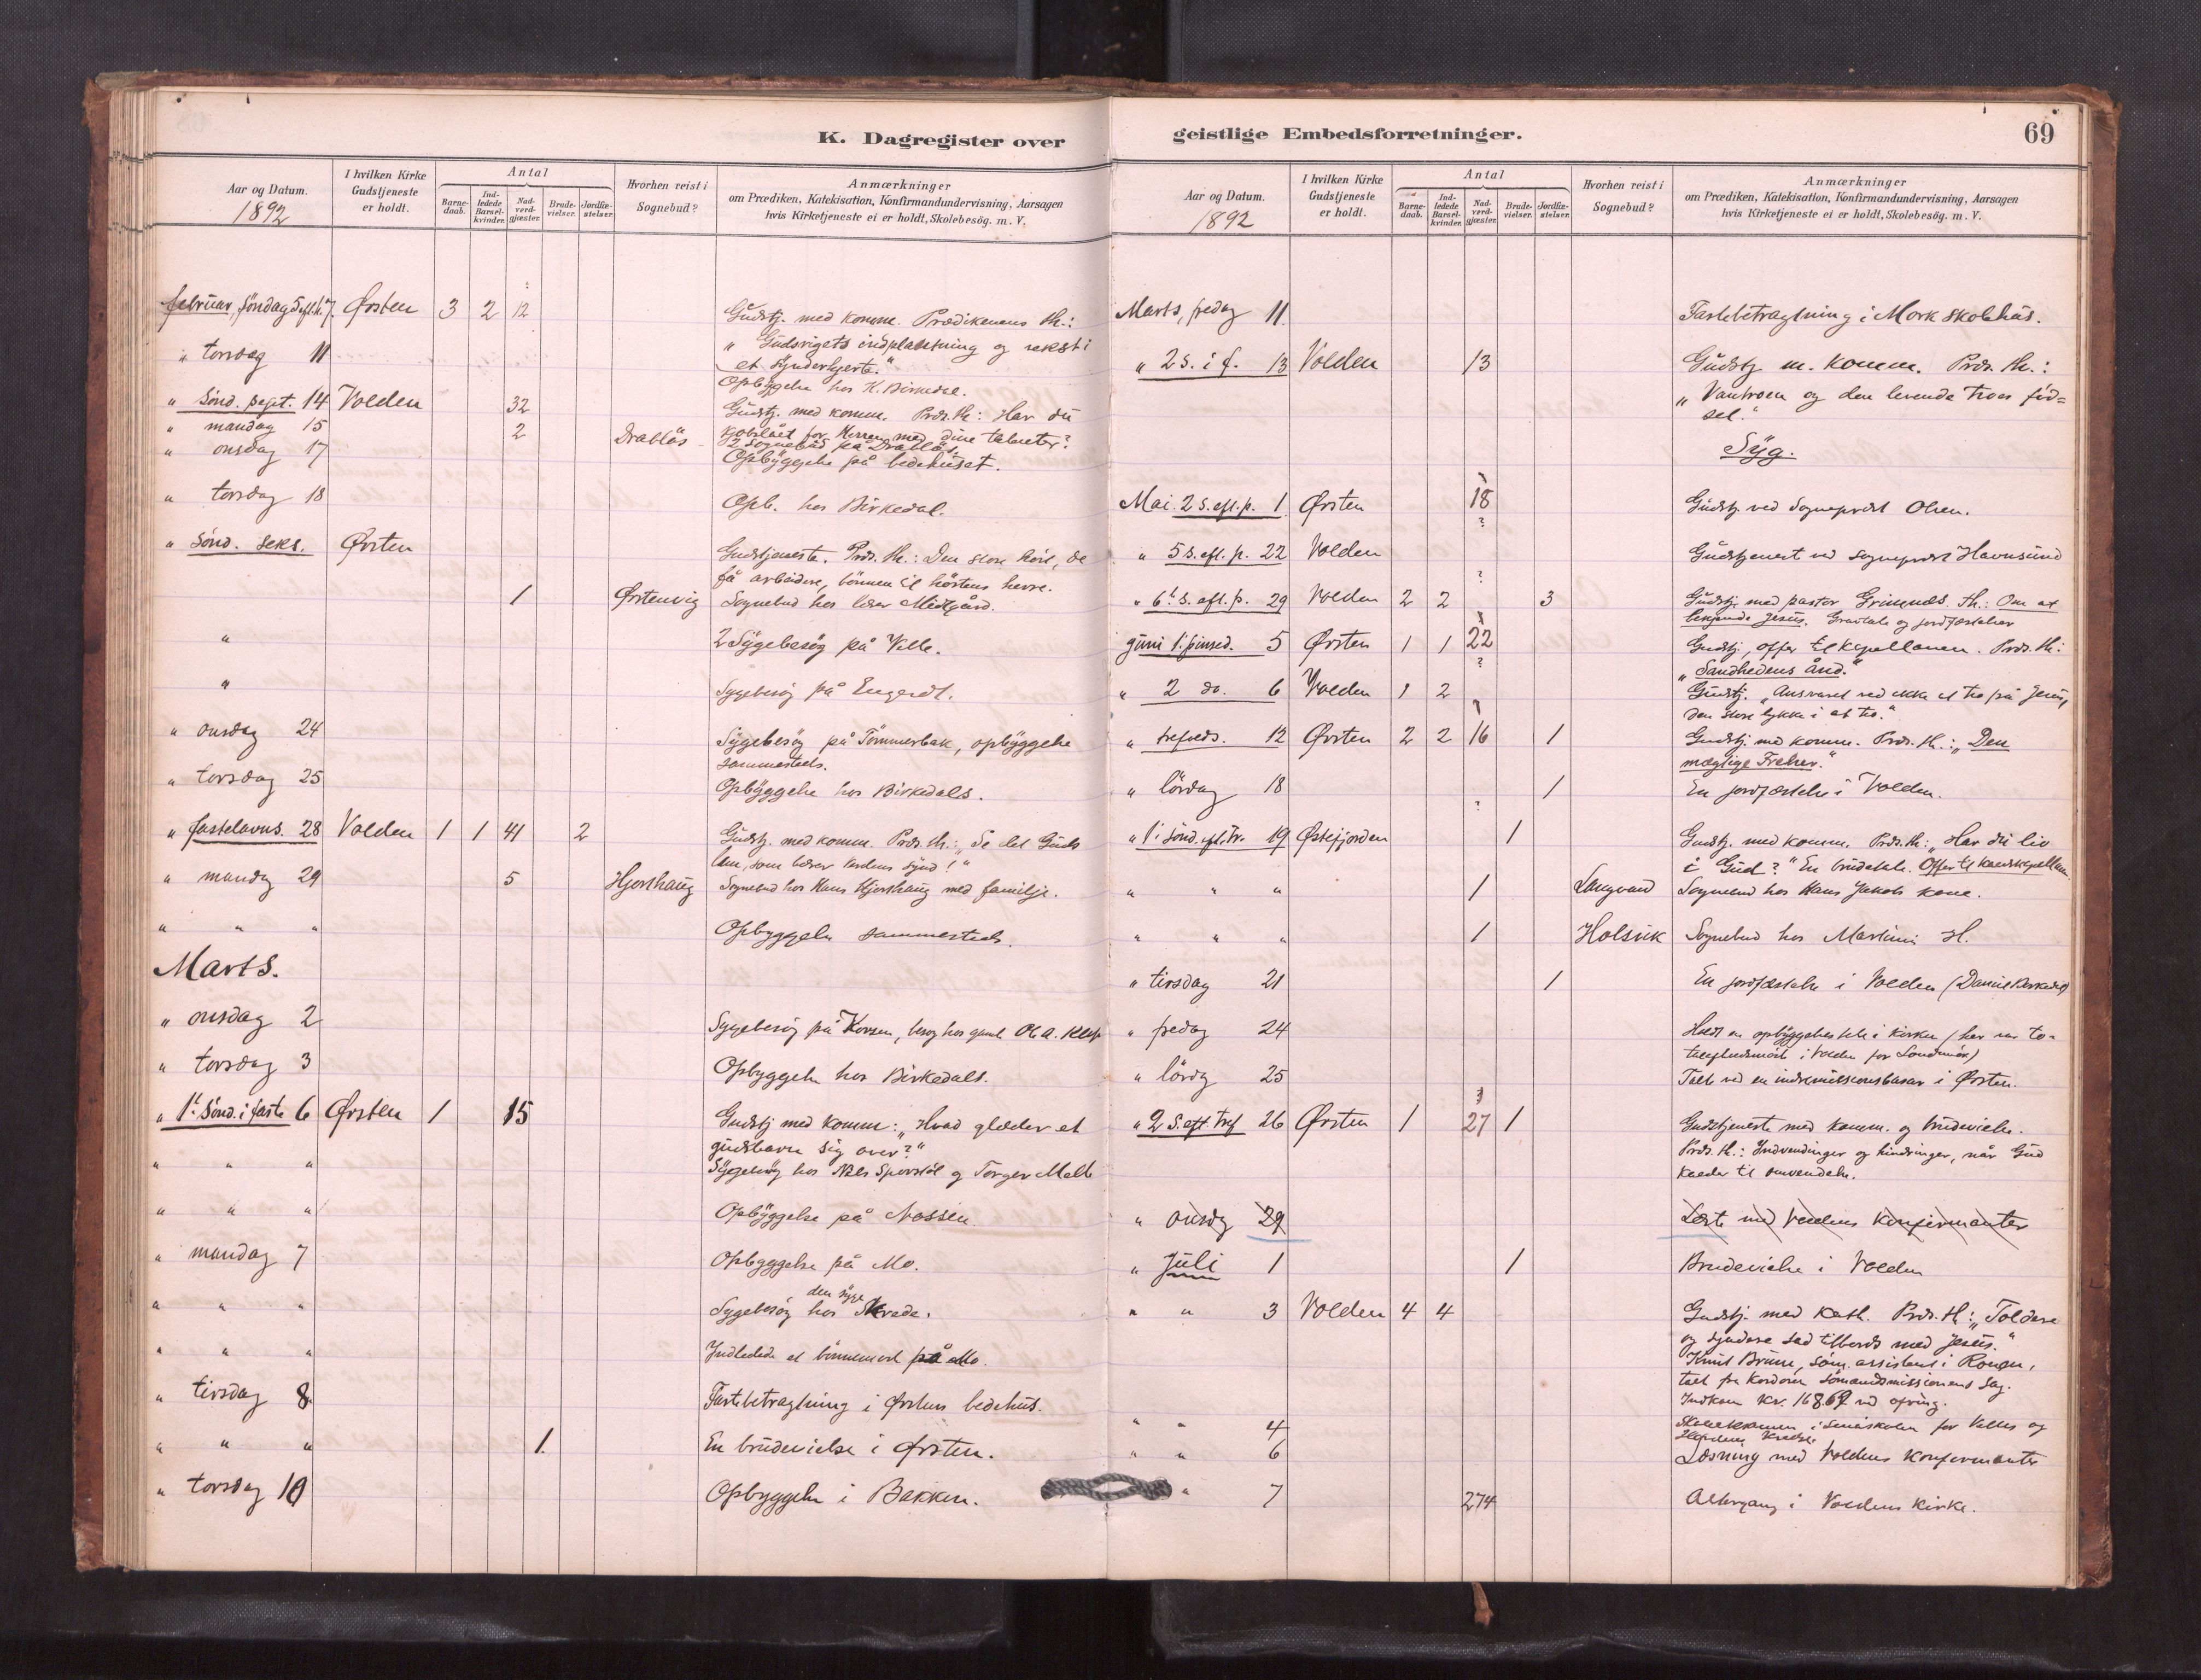 K. Dagregister over
Aar og Datum.
1892
I hvilken Kirke
Gudstjeneste
er holdt.
Antal
Barne-
daab.
Ind-
ledede
Barsel-
kvinder.
Nad-
verd-
gjæster.
Brude-
vielser.
Jordfæ-
stelser.
Hvorhen reist i
Sognebud?
Anmærkninger
om Prædiken, Katekisation, Konfirmandundervisning, Aarsagen
hvis Kirketjeneste ei er holdt, Skolebesög. m. V.
februar, söndag 5 eft. h. 7. Örsten 3 2 12 Gudstj. med komm. Prædikenens th.:
" torsdag 11 " Gudsrigets indplantning og vekst i
et synderhjerte."
Opbyggelse hos K. Birkedal.
" Sönd. sept. 14 Volden 32 Gudstj. med komm. Præd. th: Har du
" mandag 15 2 Drabløs kjøbslået for Herren med dine talenter?
2 Sognebud på Drabløs.
" onsdag 17 Opbyggelse på bedehuset.
" torsdag 18 Opb. hos Birkedal.
" Sönd. seks. Örsten Gudstjeneste. Præd. th.: Den store höst, de
få arbeidere, bönnen til höstens herre.
1 Örstenvig Sognebud hos lærer Midtgård.
" 2 Sygebesög på Velle.
" Sygebesög på Engeset.
" onsdag 24 Sygebesög på Tömmerbak, opbyggelse
sammesteds.
" torsdag 25 Opbyggelse hos Birkedals.
" fastelavns. 28 Volden 1 1 41 2 Gudstj. med komm. Præd. th.: "Se det Guds
lam, som bærer verdens synd!"
" mandag 29 5 Hjorthaug Sognebud hos Hans Hjorthaug med familje.
" " " Opbyggelse sammesteds.
Marts.
" onsdag 2 Sygebesög på Korsen, besög hos gamle Ole A.
" torsdag 3 Opbyggelse hos Birkedals.
" 1t. Sönd. i faste 6 Örsten 1 15 Gudstj med komm: "Hvad glæder et
gudsbarn sig over?"
" " " Sygebesög hos Nils Sporstöl og Torger Melle
" " " Opbyggelse på Nossen
" mandag 7 Opbyggelse på Mo.
" " " Sygebesög hos den syge Skrede.
" " " Indledede et bönnemöde på Mo.
" tirsdag 8. Fastebetragtning i Örstens bedehus.
" " " 1. En brudevielse i Örsten.
" torsdag 10 Opbyggelse i Bakken.
geistlige Embedsforretninger.
69
Aar og Datum.
1892
I hvilken Kirke
Gudstjeneste
er holdt.
Antal
Barne-
daab.
Ind-
ledede
Barsel-
kvinder.
Nad-
verd-
gjæster.
Brude-
vielser.
Jordfæ-
stelser.
Hvorhen reist i
Sognebud?
Anmærkninger
om Prædiken, Katekisation, Konfirmandundervisning, Aarsagen
hvis Kirketjeneste ei er holdt, Skolebesög. m. V.
Marts, fredag 11. Fastebetragtning i Mork skolehus.
" 2 S. i f. 13 Volden 13 Gudstj. m. komm. Præd. th.:
" Vantroen og den levende troes föd=
sel."
Syg.
Mai. 2 S. eft. p. 1 Örsten 18 Gudstj. ved Sogneprest Olsen.
?
" 5 S. eft. p. 22 Volden Gudstjenest ved sogneprest Havnsund
?
" 6t. S. eft. p. 29 Volden 2 2 3 Gudstj. med pastor Grimnes. th.: Om at
bekjende Jesus. Gravtale og jordfæstelser
Juni 1. pinsed. 5 Örsten 1 1 22 Gudstj, offer til kapellanen. Præd. th:
? "Sandhedens ånd."
" 2 do. 6 Volden 1 2 Gudstj. "Ansvaret ved ikke at tro på Jesus,
den store lykke i at tro."
" trefoeds. 12 Örsten 2 2 16 1 Gudstj. med komm. Præd. th.: "Den
mægtige Frelser."
" lördag 18 1 En jordfæstelse i Volden.
?
" 1. sönd. eft. Tr. 19 Østefjorden 1 Gudstj. med komm. Præd. th: "Har du liv
i Gud?" En brudetale. Offer til
" " " 1 Langvand Sognebud hos Hans Jakobs kone.
" " " 1 Holsvik Sognebud hos Martinus H.
" tirsdag 21 1 En jordfæstelse i Volden (Daniel Birkedal)
" fredag 24 Holdt en opbyggelsestale i kirken (her var to-
talafholdsmöde i Volden for Söndmör)
" lördg 25 Talte ved en indremissionsbasar i Örsten.
" 2 S. eft. tref 26 Örsten 1 27 1 Gudstjeneste med komm. og brudevielse.
Præd. th.: Indvendinger og hindringer, når Gud
kalder til omvendelse.
" onsdg 29 Læste med Voldens konfirmanter
" Juli 1 1 Brudevielse i Volden
" " 3 Volden 4 4 Gudstj. med kath. Præd. th: "Toldere
og syndere sad tilbords med Jesus."
Knut Brune, söm. assistent i Rouen,
talte fra kordören sömandsmissionens sag.
Indkom kr. 168.67 ved ofring.
" " 4 Skoleeksamen i småskolen for Velles og
" " 6 Læsning med Voldens konfirmanter
" 7 274 Altergang i Voldens kirke.